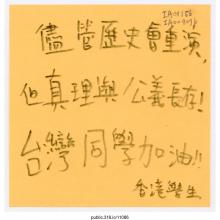 儘管歷史會重演,
但真理與公義長存!
台灣同學加油!!
香港學生
public.318.io/11086